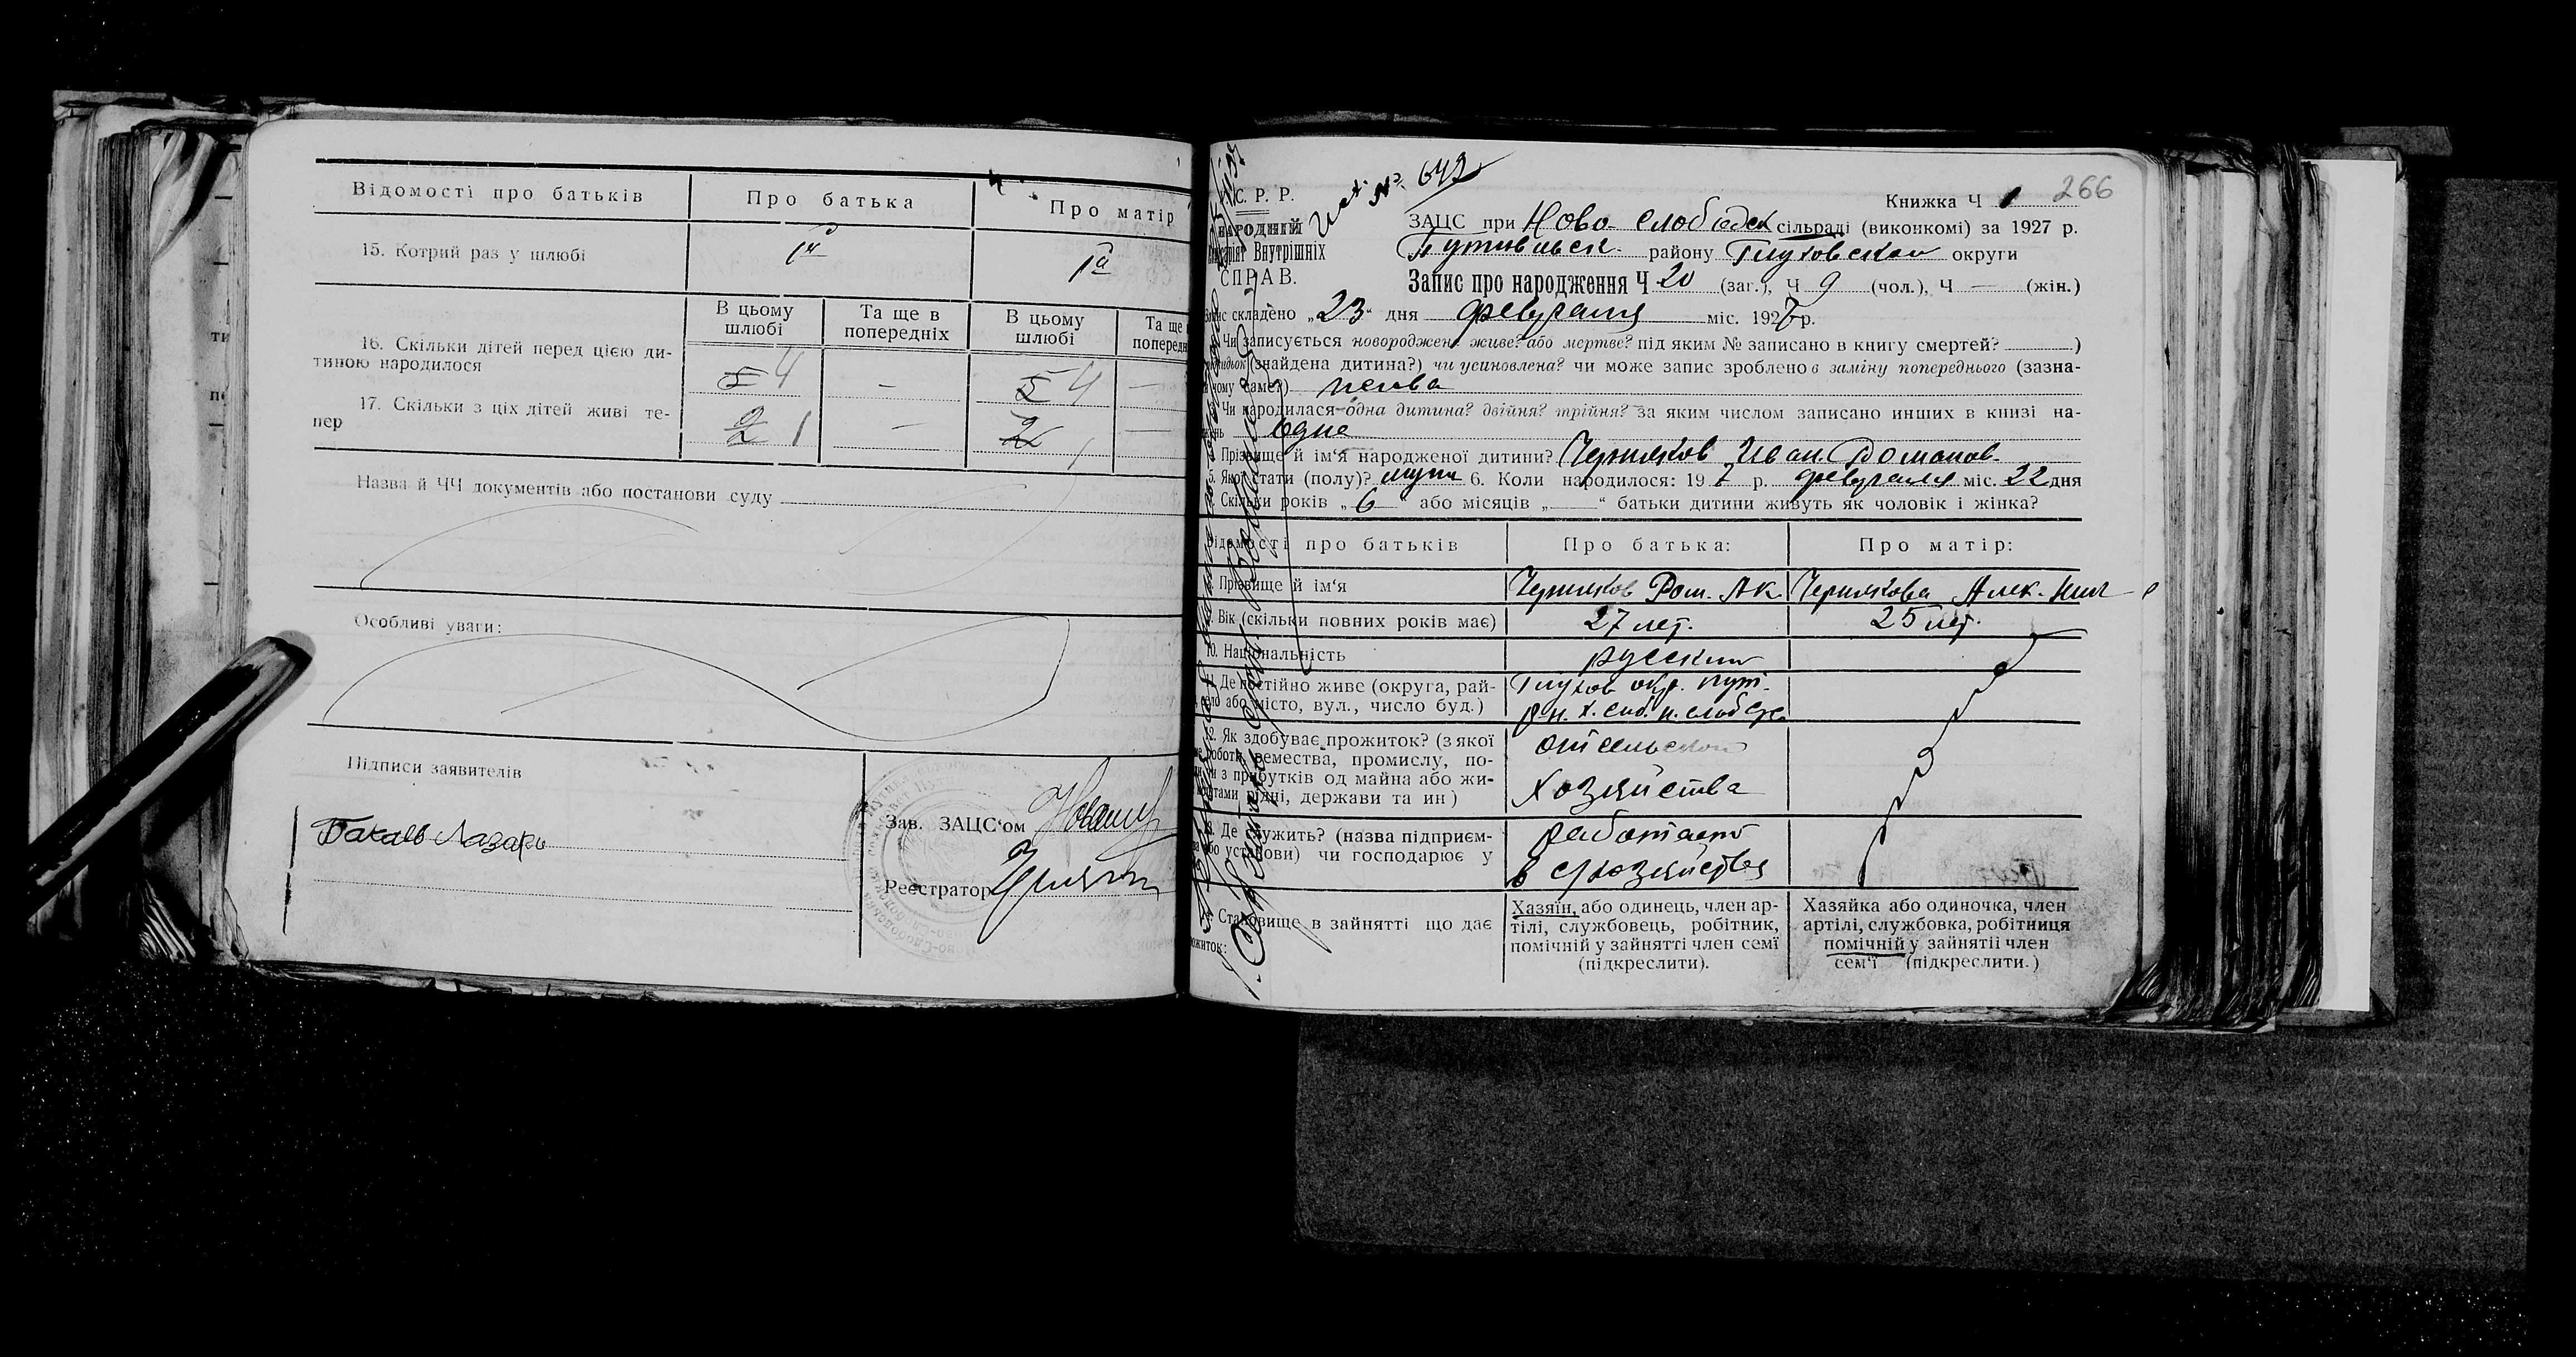 Відомості про батьків
Про батька
Про матір
15. Котрий раз у шлюбі
1й
1й
В цьому шлюбі
Та ще в попередніх
В цьому шлюбі
Та ще
попередн
16. Скільки дітей перед цією ди-
тиною народилося
5 4
—
5 4
—
17. Скільки з ціх дітей живі те-
пер
2 1
—
2 1
—
Назва й ЧЧ документів або постанови суду
Особливі уваги:
Підписи заявителів
Бакаев Лазарь
Зав. ЗАЦС'ом
Реєстратор
266
С. Р. Р.
НАРОДНИЙ
Внутрішніх
СПРАВ.
№ 642
Книжка Ч 1
ЗАЦС при Ново Слобідск сільраді (виконкомі) за 1927 р.
Путивльск. району Глуховской округи
Запис про народження Ч 20 (заг.), Ч 9 (чол.), Ч — (жін.)
складено „23" дня февраля міс. 1927 р.
Чи записується новороджен. живе? або мертве? під яким № записано в книгу смертей? )
(знайдена дитина?) чи усиновлена? чи може запис зроблено в заміну попереднього (зазна-
чому саме?) жива
Чи народилася одна дитина? двійня? трійня? за яким числом записано инших в книзі на-
одна
Прізвище й ім'я народженої дитини? Черняков Иван Романов.
5. Якої стати (полу)? муж 6. Коли народилося: 19 7 р. февраля міс. 22 дня
Скільки років „ 6 " або місяців „ " батьки дитини живуть як чоловік і жінка?
Відомості про батьків
Про батька:
Про матір:
Прізвище й ім'я
Черняков Ром. Ак
Чернякова Алек.
Вік (скільки повних років має)
27 лет.
25 лет.
10. Національність
русский
11. Де постійно живе (округа, рай-
село або місто, вул., число буд.)
Глухов окр. Пут.
12. Як здобуває прожиток? (з якої
роботи, ремества, промислу, по-
з прибутків од майна або жи-
рідні, держави та ин)
от сельского
хозяйства
13. Де служить? (назва підприєм-
або установи) чи господарює у
работает
в с/хозяйства
Становище в зайнятті що дає
прожиток:
Хазяїн, або одинець, член ар-
тілі, службовець, робітник,
помічній у зайнятті член семї
(підкреслити).
Хазяйка або одиночка, член
артілі, службовка, робітниця
помічній у зайнятіі член
сем'ї (підкреслити.)